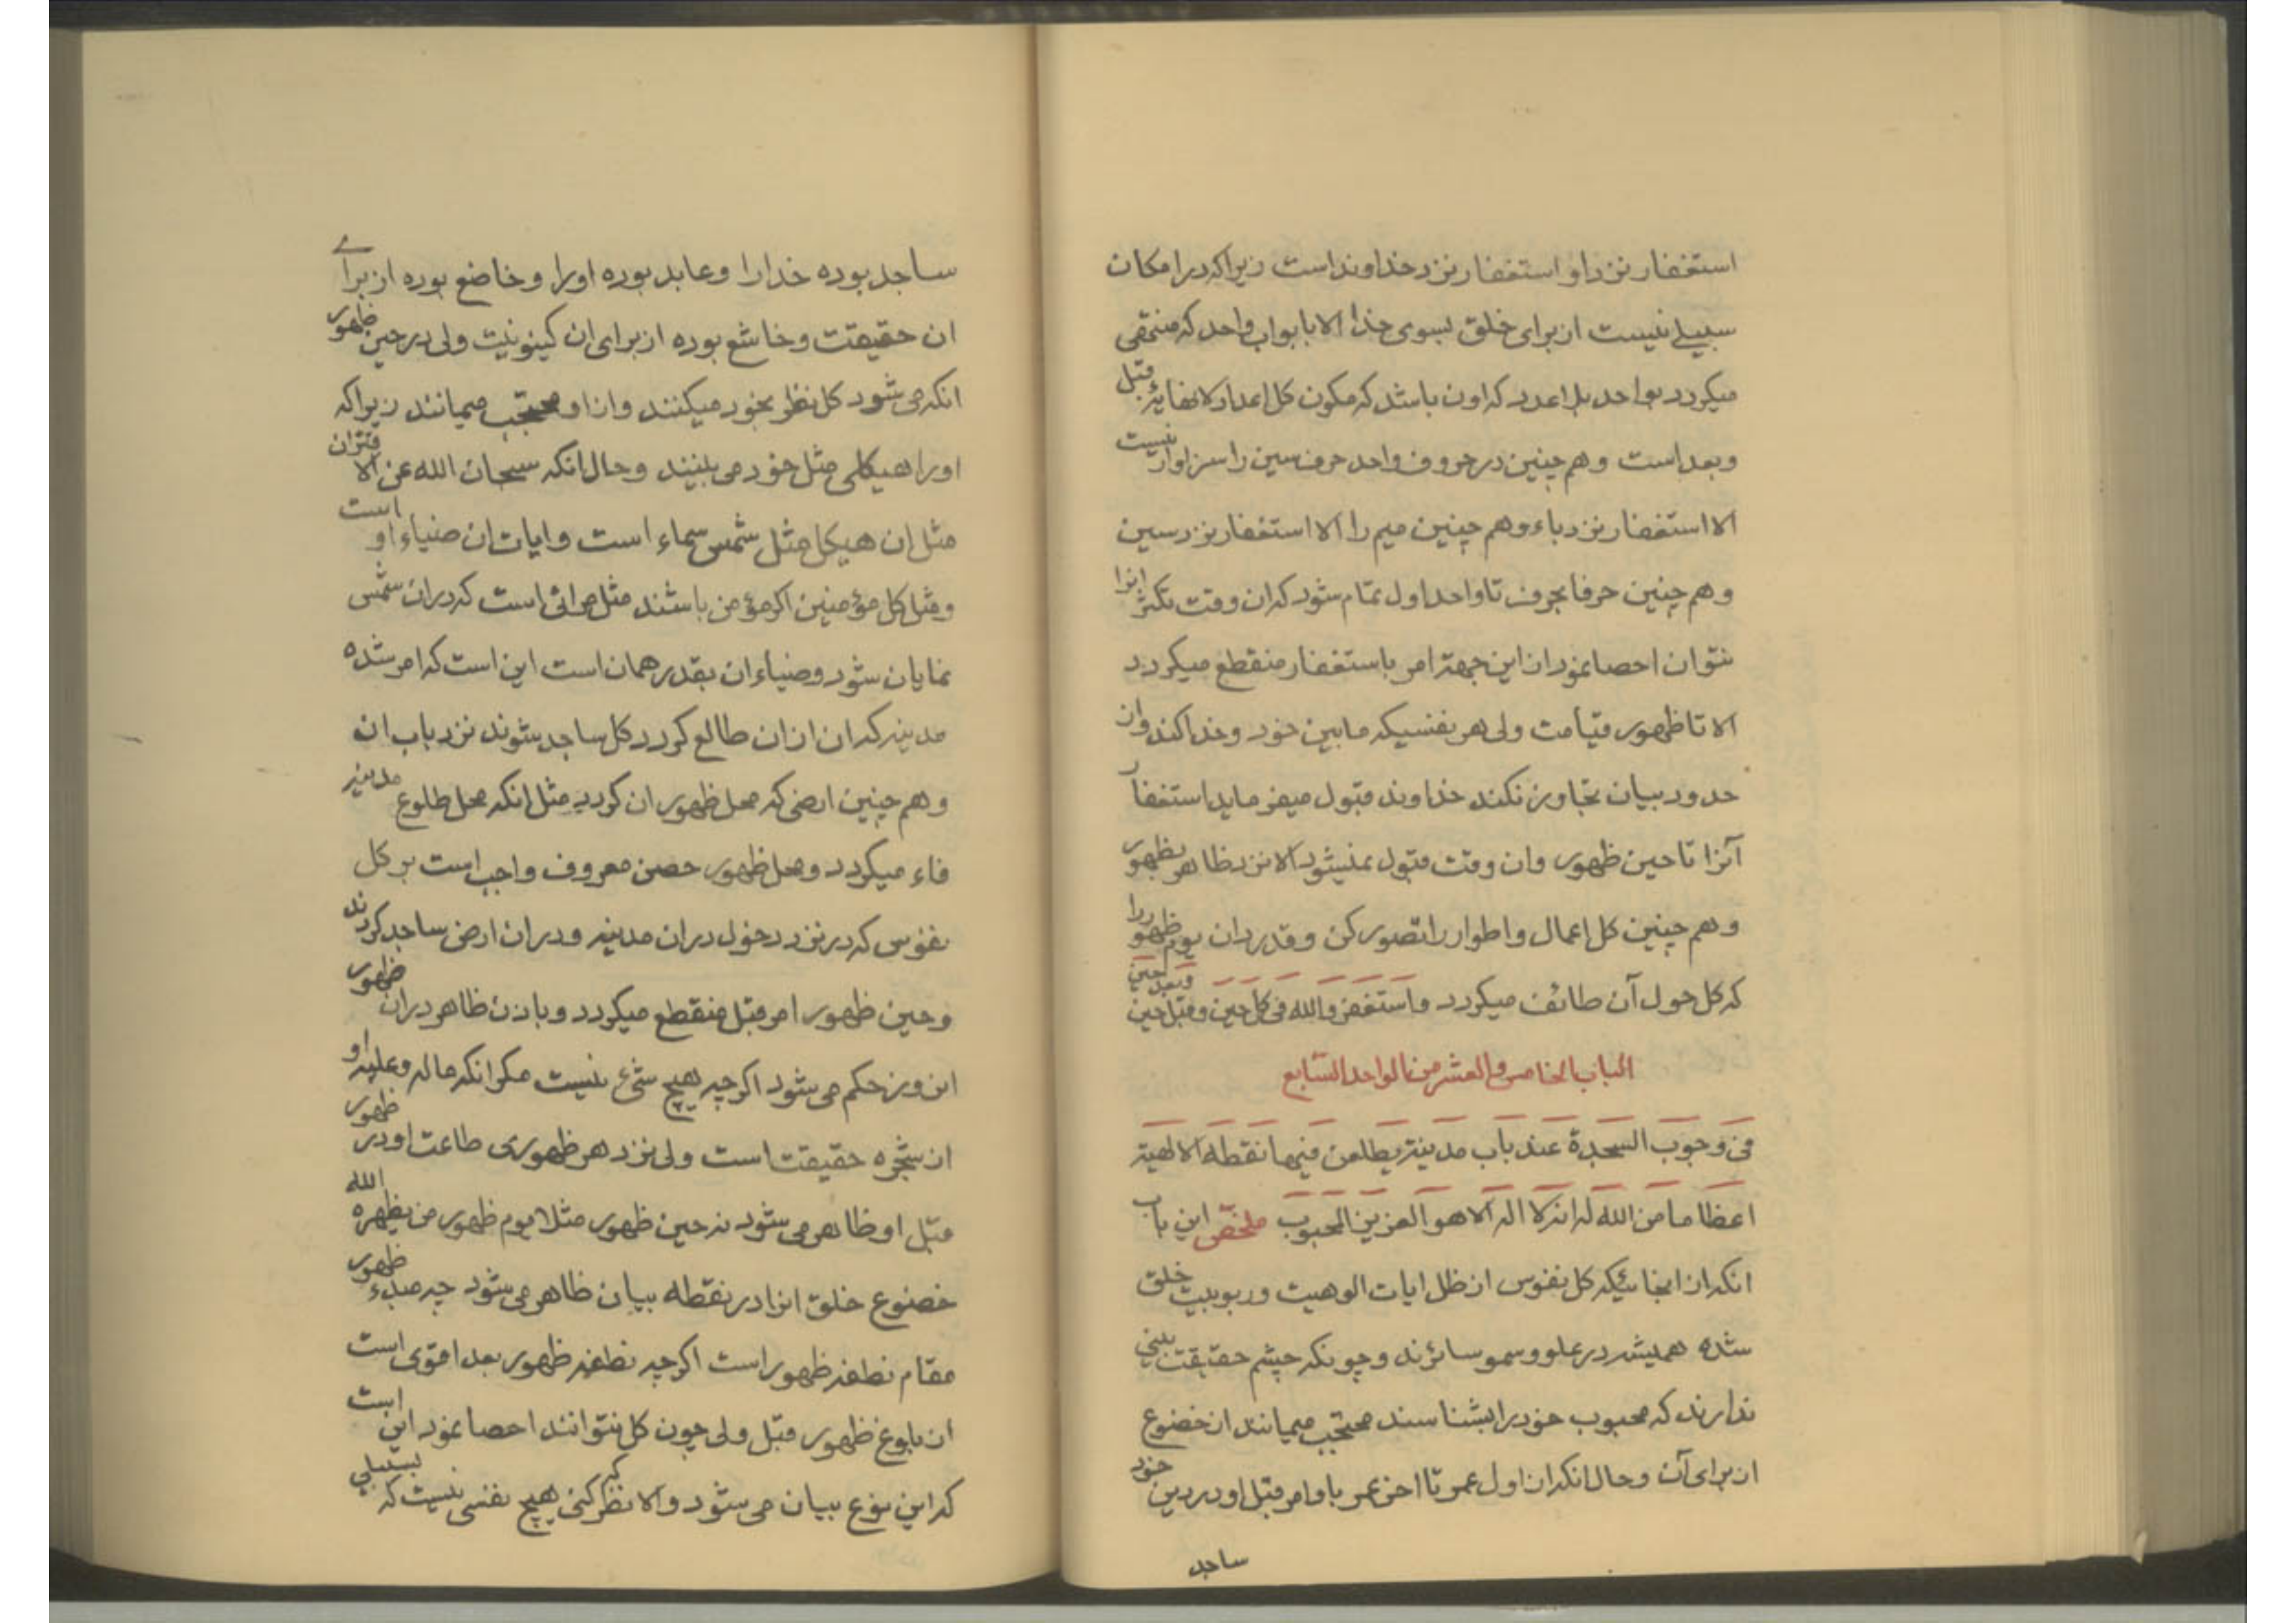 استغفار نزد او استغفار نزد خداوند است زیرا که در امکان
سبیلے نیست از برای خلق بسوی خدا الا بابواب واحد که منتهی
میکردد بواحد بلا عدد که اون باشد که مکون کل اعداد لانهایهٔ قبل
و بعد است و هم چنین در حروف واحد حرف سین را سزاوار نیست
الا استغفار نزد باء و هم چنین میم را الا استغفار نزد سین
و هم چنین حرفا بحرف تا واحد اول تمام شود که ان وقت تکثر انرا
نتوان احصا نمود از این جهة امر باستغفار منقطع میکردد
الا تا ظهور قیامت ولی هر نفسیکه ما بین خود و خدا کند و از
حدود بیان تجاوز نکند خداوند قبول میفرماید استغفار
آنرا تا حین ظهور و ان وقت قبول نمیشود الا نزد ظاهر بظهور
و هم چنین کل اعمال و اطوار را تصور کن و قدر دان یوم ظهور را
که کل حول آن طائف میکردد و استغفروا الله فی کل حین و قبل حین و بعد حین
الباب الخامس و العشر من الواحد السابع
فی وجوب السجدة عند باب مدینة یطلعن فیها نقطة الالهیة
اعظاما من الله له انه لا اله الا هو العزیز المحبوب ملخص این باب
انکه از انجائیکه کل نفوس از ظل ایات الوهیت و ربوبیت خلق
شده همیشه در علو و سمو سائرند و چونکه چشم حقیقت بینی
ندارند که محبوب خود را بشناسند محتجب میمانند از خضوع
از برای آن و حال انکه از اول عمر تا اخر عمر باوامر قبل او در دین خود
ساجد
ساجد بوده خدا را و عابد بوده او را و خاضع بوده از براے
ان حقیقت و خاشع بوده از برای ان کینونیت ولی در حین ظهور
انکه می شود کل نظر بخود میکنند و از او محتجب میمانند زیرا که
او را هیکلی مثل خود می بینند و حال انکه سبحان الله عن الاقتران
مثل ان هیکل مثل شمس سماء است و ایات ان ضیاء او است
و مثل کل مؤمنین اکر مؤمن باشند مثل مرائی است که در ان شمس
نمایان شود و ضیاء ان بقدر همان است این است که امر شده
مدینه که ان از ان طالع کردد کل ساجد شوند نزد باب ان
و هم چنین ارضی که محل ظهور ان کردد مثل انکه محل طلوع مدینه
فاء میکردد و محل ظهور حصن معروف واجب است بر کل
نفوس که در نزد دخول در ان مدینه و در ان ارض ساجد کردند
و حین ظهور امر قبل منقطع میکردد و باذن ظاهر در ان ظهور
این وز حکم می شود اکر چه هیچ شئ نیست مکر انکه ما له و علیه او
ان شجره حقیقت است ولی نزد هر ظهوری طاعت او در ظهور
قبل او ظاهر می شود نه حین ظهور مثلا یوم ظهور من یظهره الله
خضوع خلق انرا در نقطه بیان ظاهر می شود چه مبدء ظهور
مقام نطفه ظهور است اکر چه نطفه ظهور بعد اقوی است
از بلوغ ظهور قبل ولی چون کل نتوانند احصا نمود این است
که این نوع بیان می شود و الا نظر کنی که هیچ نفسی نیست که